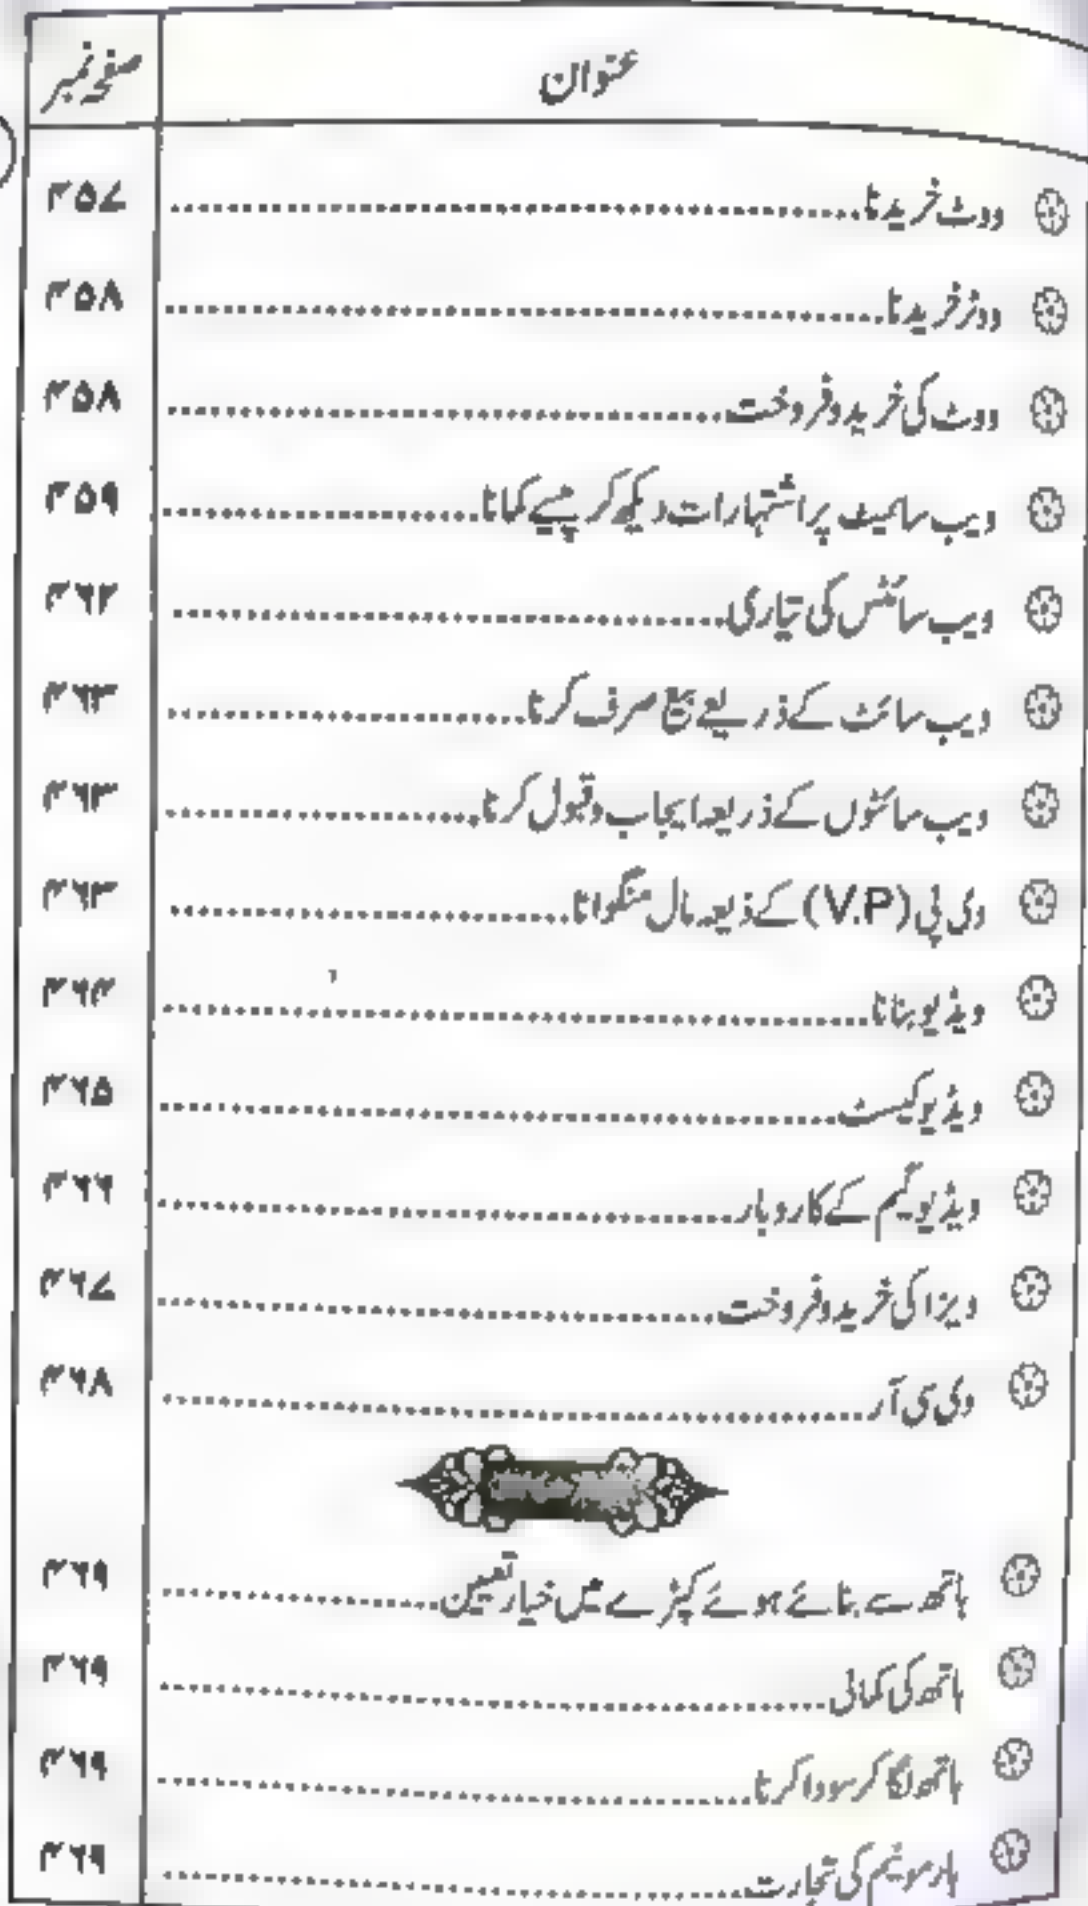 عنوان صفحہ نمبر
ووٹ خریدنا ۴۵۷
ووٹر خریدنا ۴۵۸
ووٹ کی خرید وفروخت ۴۵۸
ویب سائیٹ پر اشتہارات دیکھ کر پیسے کمانا ۴۵۹
ویب سائٹس کی تیاری ۴۶۲
ویب سائٹ کے ذریعے بیع صرف کرنا ۴۶۳
ویب سائٹوں کے ذریعہ ایجاب وقبول کرنا ۴۶۳
وی پی (V.P) کے ذریعہ مال منگوانا ۴۶۳
ویڈیو بنانا ۴۶۴
ویڈیو کیسٹ ۴۶۵
ویڈیو گیم کے کاروبار ۴۶۶
ویزا کی خرید وفروخت ۴۶۷
وی سی آر ۴۶۸
ہاتھ سے بنائے ہوئے کپڑے میں خیار تعیین ۴۶۹
ہاتھ کی کمائی ۴۶۹
ہاتھ لگا کر سودا کرنا ۴۶۹
ہارمونیم کی تجارت ۴۶۹